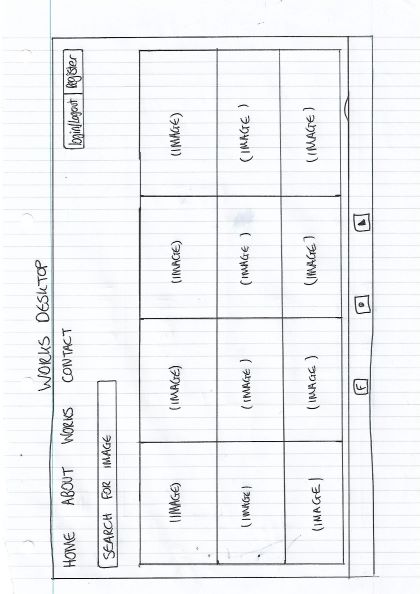 WORKS DESKTOP
HOME ABOUT WORKS CONTACT
login/logout Register
SEARCH FOR IMAGE
(IMAGE) (IMAGE) (IMAGE) (IMAGE)
(IMAGE) (IMAGE) (IMAGE) (IMAGE)
(IMAGE) (IMAGE) (IMAGE) (IMAGE)
F